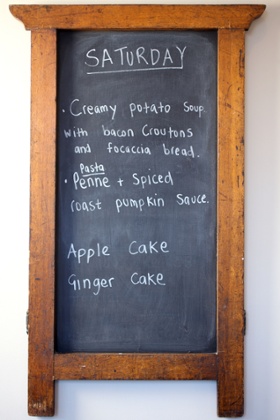 SATURDAY
· Creamy potato Soup.
with bacon Croutons
and focaccia bread.
Pasta
· Penne + Spiced
roast pumpkin Sauce.
Apple Cake
Ginger Cake